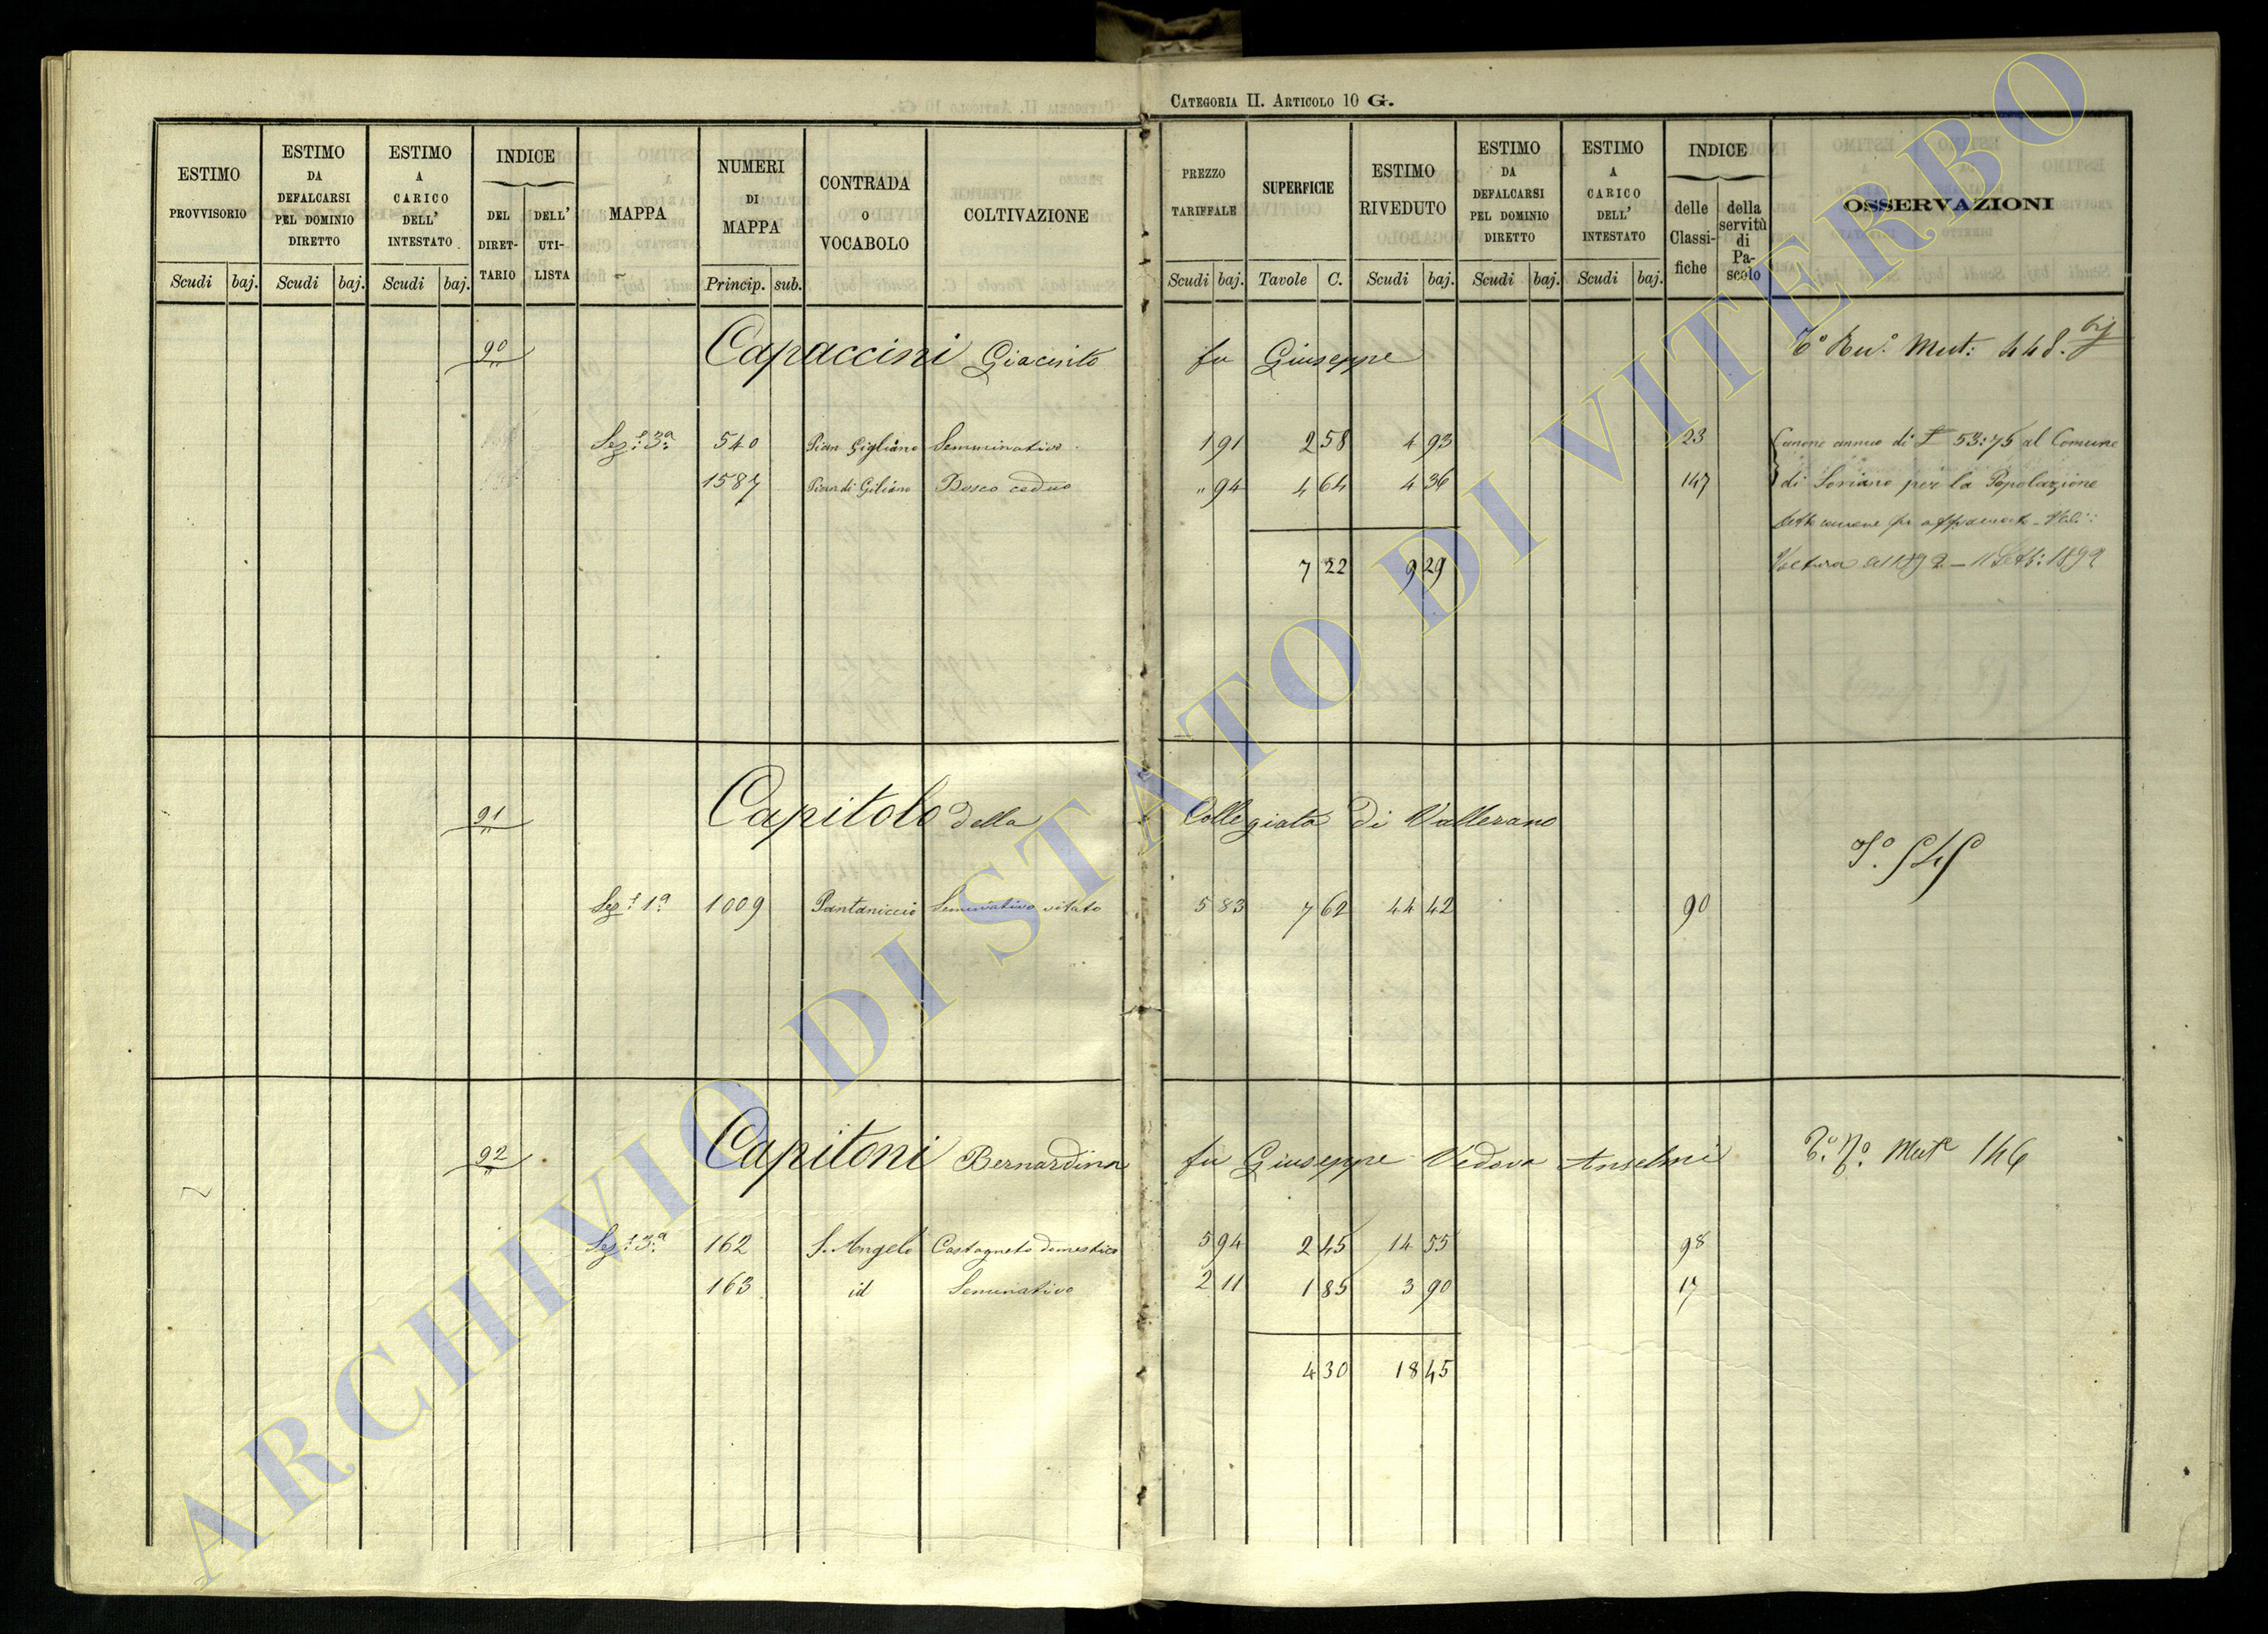 CATEGORIA II. ARTICOLO 10 G.
ESTIMO PROVVISORIO Scudi baj.
ESTIMO DA DEFALCARSI PEL DOMINIO DIRETTO Scudi baj.
ESTIMO A CARICO DELL' INTESTATO Scudi baj.
INDICE DEL DIRETTARIO DELL' UTILISTA
MAPPA
NUMERI DI MAPPA Princip. sub.
CONTRADA O VOCABOLO
COLTIVAZIONE
PREZZO TARIFFALE Scudi baj.
SUPERFICIE Tavole C.
ESTIMO RIVEDUTO Scudi baj.
ESTIMO DA DEFALCARSI PEL DOMINIO DIRETTO Scudi baj.
ESTIMO A CARICO DELL' INTESTATO Scudi baj.
INDICE delle Classifiche della servitù di Pascolo
OSSERVAZIONI
90 Capaccini Giacinto fu Giuseppe Mut: 448. bis
Sez: 3a 540 Pian Gigliano Semminativo 1 91 2 58 4 93 23 Canone annuo di £ 53:75 al Comune
1587 Pian di Giliano Bosco ceduo " 94 4 64 4 36 147 di Soriano per la Popolazione
7 22 9 29
Voltura 1892 - 11 Sett: 1892
91 Capitolo della Collegiata di Vallerano
Sez: 1a 1009 Pantaniccio Seminativo vitato 5 83 7 62 44 42 90
92 Capitoni Bernardina fu Giuseppe Vedova Anselmi Mut 146
Sez: 3a 162 S. Angelo Castagneto domestico 5 94 2 45 14 55 98
163 id Seminativo 2 11 1 85 3 90 17
4 30 18 45
ARCHIVIO DI STATO DI VITERBO